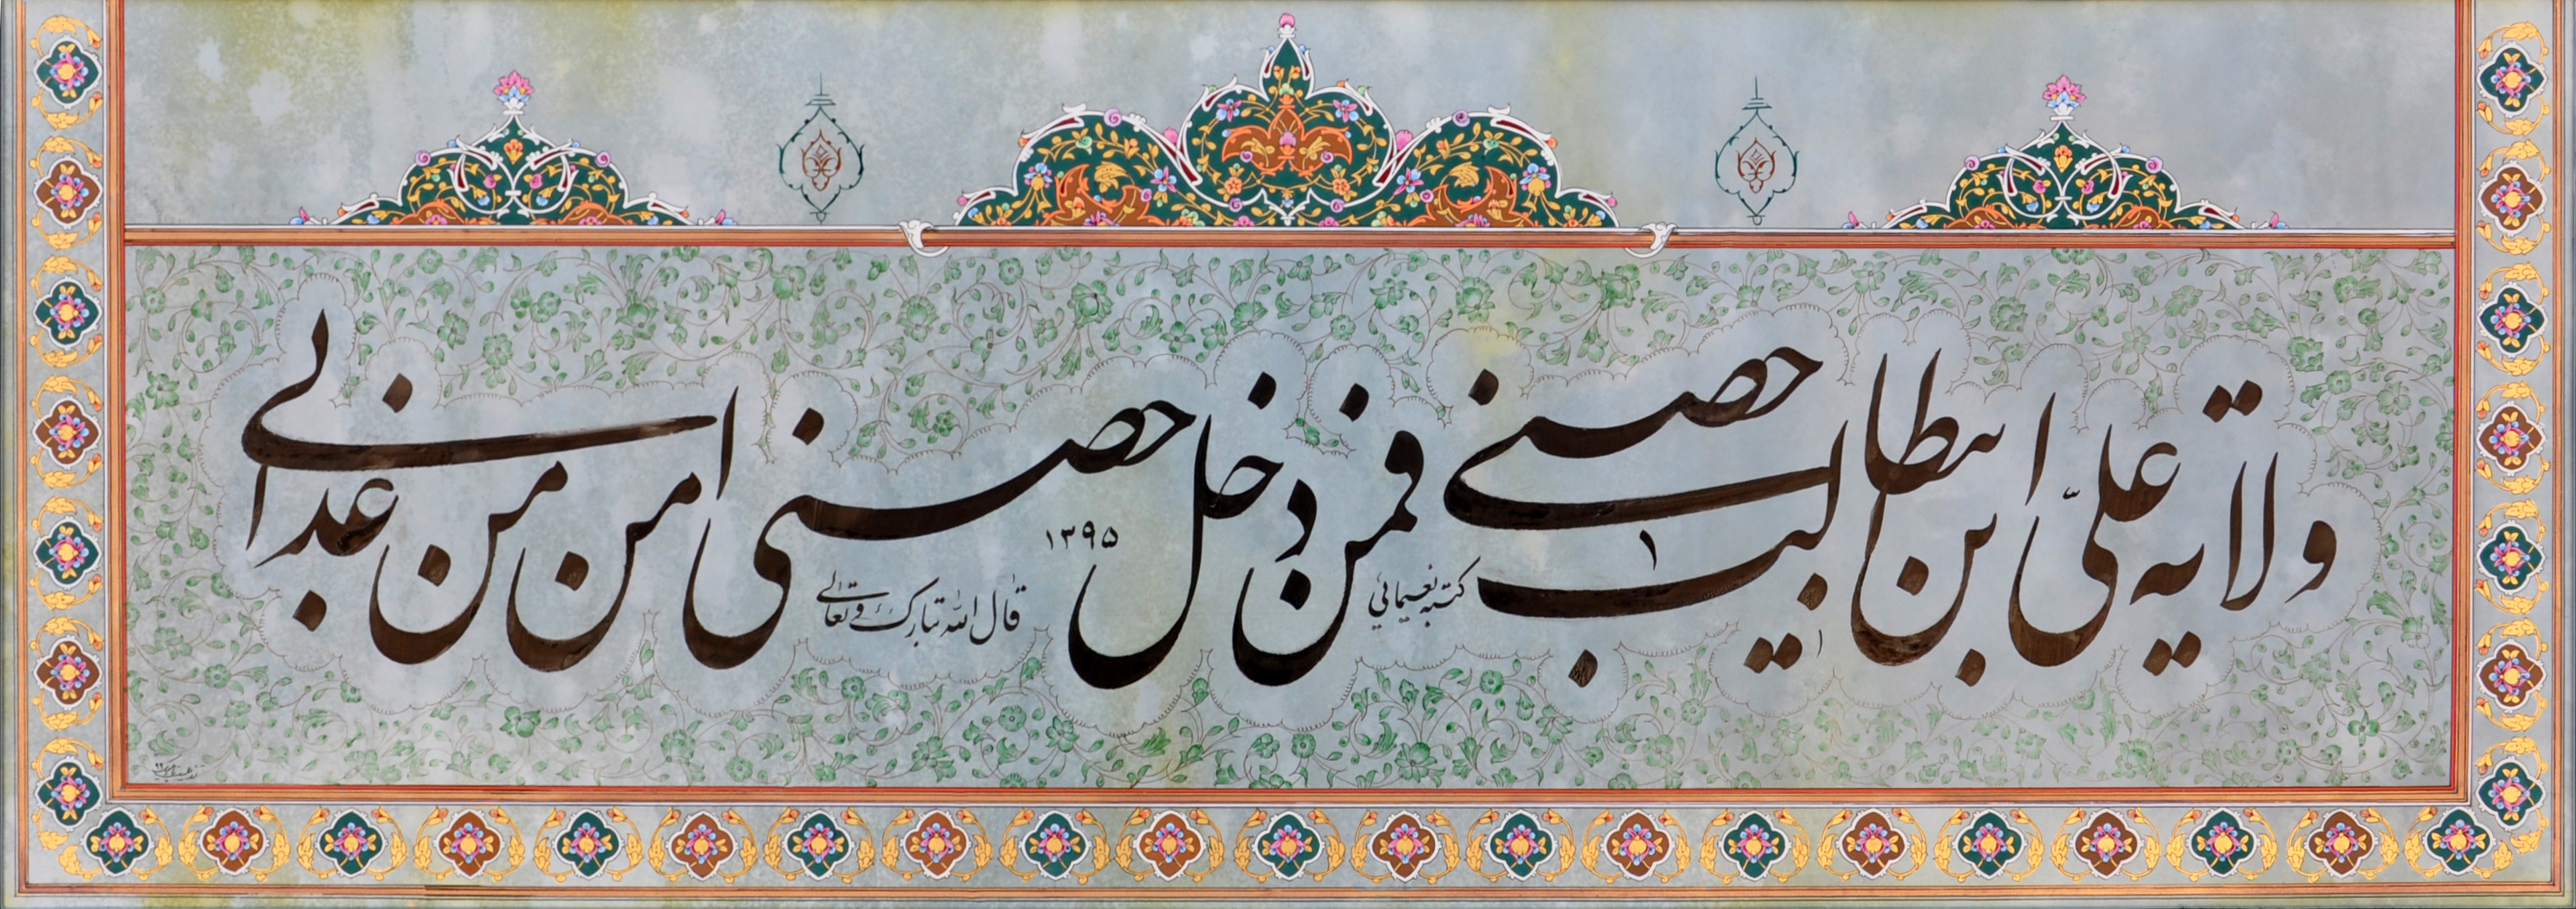 ولایة علیّ ابن ابیطالب حصنی فمن دخل حصنی امن من عذابی
قال الله تبارک و تعالی
۱۳۹۵
کتبه نعیمائی